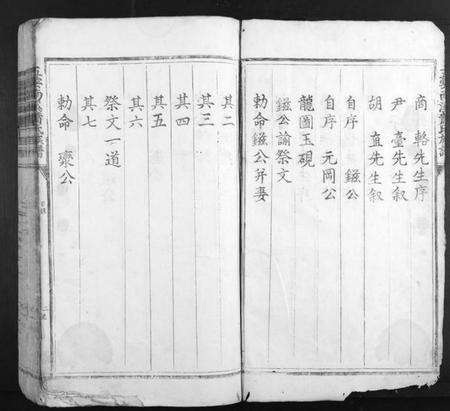 商輅先生序
尹臺先生叙
胡直先生叙
自序 鎡公
自序 元岡公
龍圖玉硯
鎡公諭祭文
勅命鎡公并妻
其二
其三
其四
其五
其六
祭文一道
其七
勅命 襃公